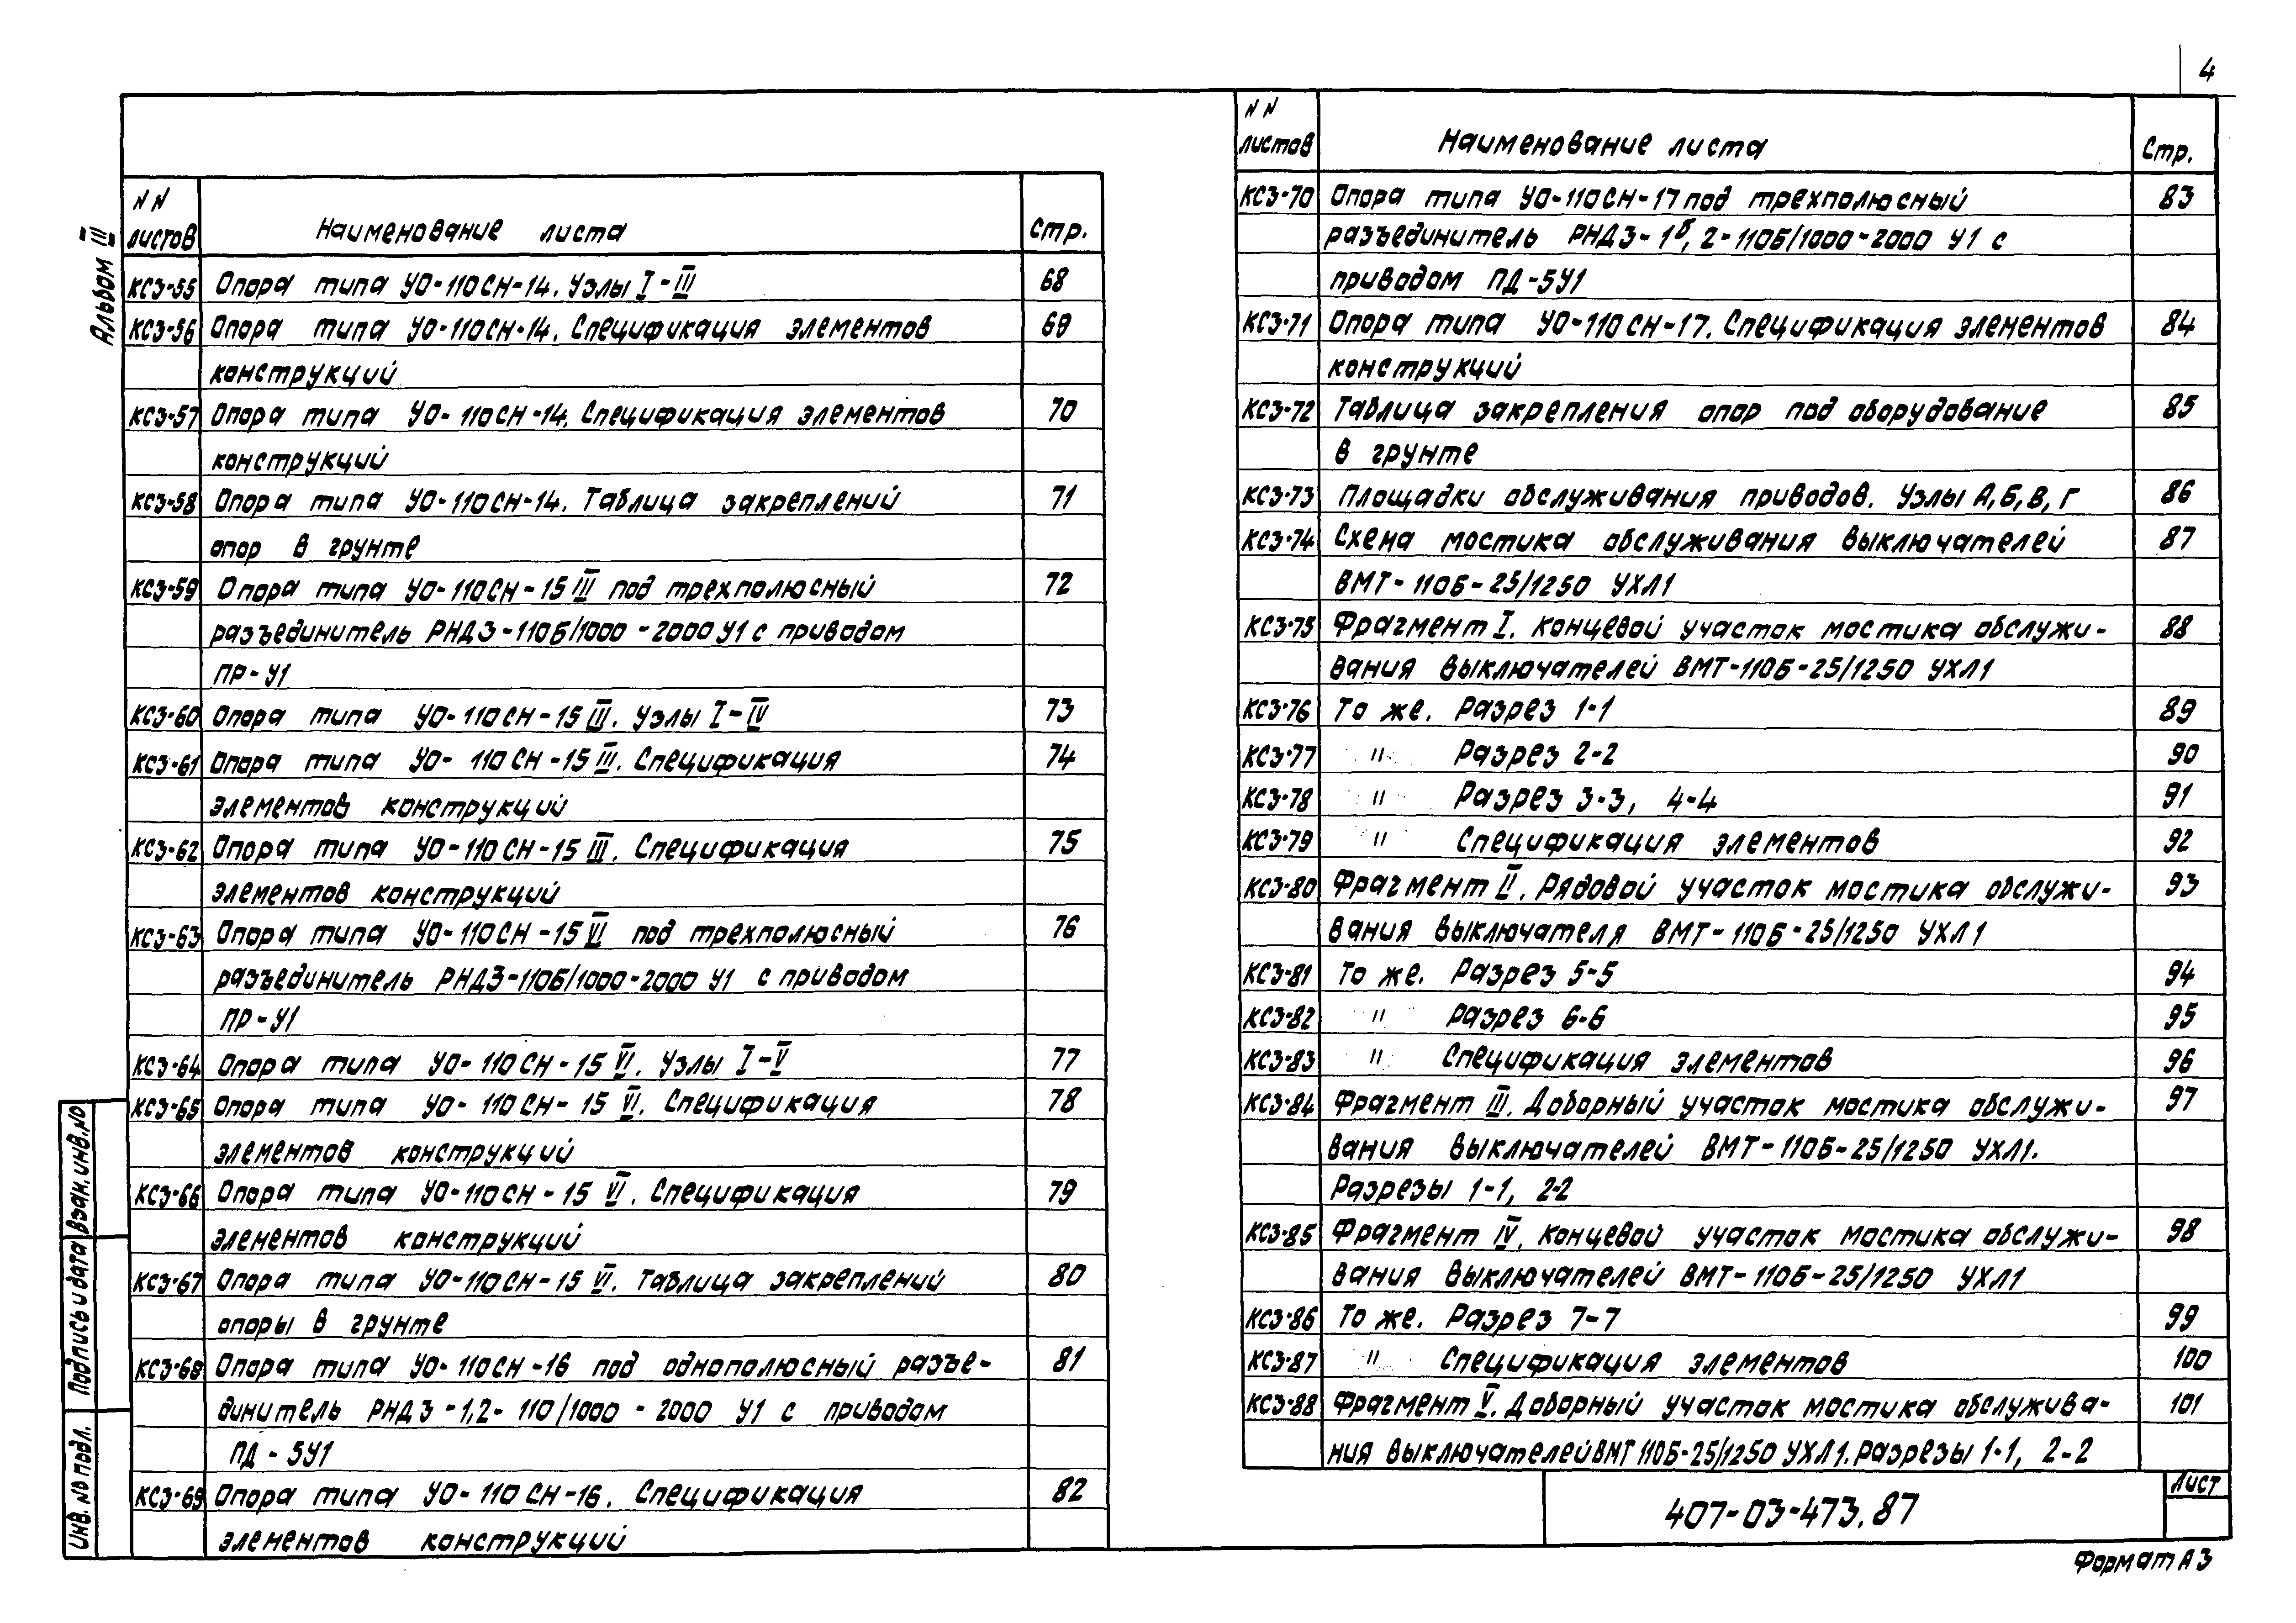 4
Альбом III
NN листов Наименование листа Стр.
КС3-55 Опора типа УО-110СН-14. Узлы I-III 68
КС3-56 Опора типа УО-110СН-14. Спецификация элементов 69
конструкций
КС3-57 Опора типа УО-110СН-14. Спецификация элементов 70
конструкций
КС3-58 Опора типа УО-110СН-14. Таблица закреплений 71
опор в грунте
КС3-59 Опора типа УО-110СН-15 III под трехполюсный 72
разъединитель РНДЗ-110Б/1000-2000 У1 с приводом
ПР-У1
КС3-60 Опора типа УО-110СН-15 III. Узлы I-IV 73
КС3-61 Опора типа УО-110СН-15 III. Спецификация 74
элементов конструкций
КС3-62 Опора типа УО-110СН-15 III. Спецификация 75
элементов конструкций
КС3-63 Опора типа УО-110СН-15 VI под трехполюсный 76
разъединитель РНДЗ-110Б/1000-2000 У1 с приводом
ПР-У1
КС3-64 Опора типа УО-110СН-15 VI. Узлы I-V 77
КС3-65 Опора типа УО-110СН-15 VI. Спецификация 78
элементов конструкций
КС3-66 Опора типа УО-110СН-15 VI. Спецификация 79
элементов конструкций
КС3-67 Опора типа УО-110СН-15 VI. Таблица закреплений 80
опоры в грунте
КС3-68 Опора типа УО-110СН-16 под однополюсный разъе- 81
динитель РНДЗ-1,2-110/1000-2000 У1 с приводом
ПД-5У1
КС3-69 Опора типа УО-110СН-16. Спецификация 82
элементов конструкций
NN листов Наименование листа Стр.
КС3-70 Опора типа УО-110СН-17 под трехполюсный 83
разъединитель РНДЗ-1б, 2-110Б/1000-2000 У1 с
приводом ПД-5У1
КС3-71 Опора типа УО-110СН-17. Спецификация элементов 84
конструкций
КС3-72 Таблица закрепления опор под оборудование 85
в грунте
КС3-73 Площадки обслуживания приводов. Узлы А,Б,В,Г 86
КС3-74 Схема мостика обслуживания выключателей 87
ВМТ-110Б-25/1250 УХЛ1
КС3-75 Фрагмент I. Концевой участок мостика обслужи- 88
вания выключателей ВМТ-110Б-25/1250 УХЛ1
КС3-76 То же. Разрез 1-1 89
КС3-77 " Разрез 2-2 90
КС3-78 " Разрез 3-3, 4-4 91
КС3-79 " Спецификация элементов 92
КС3-80 Фрагмент II. Рядовой участок мостика обслужи- 93
вания выключателя ВМТ-110Б-25/1250 УХЛ1
КС3-81 То же. Разрез 5-5 94
КС3-82 " Разрез 6-6 95
КС3-83 " Спецификация элементов 96
КС3-84 Фрагмент III. Доборный участок мостика обслужи- 97
вания выключателей ВМТ-110Б-25/1250 УХЛ1.
Разрезы 1-1, 2-2
КС3-85 Фрагмент IV. Концевой участок мостика обслужи- 98
вания выключателей ВМТ-110Б-25/1250 УХЛ1
КС3-86 То же. Разрез 7-7 99
КС3-87 " Спецификация элементов 100
КС3-88 Фрагмент V. Доборный участок мостика обслужива- 101
ния выключателей ВМТ 110Б-25/1250 УХЛ1. Разрезы 1-1, 2-2
Взам. инв. №
Подпись и дата
Инв. № подл.
407-03-473.87
Лист
Формат А3